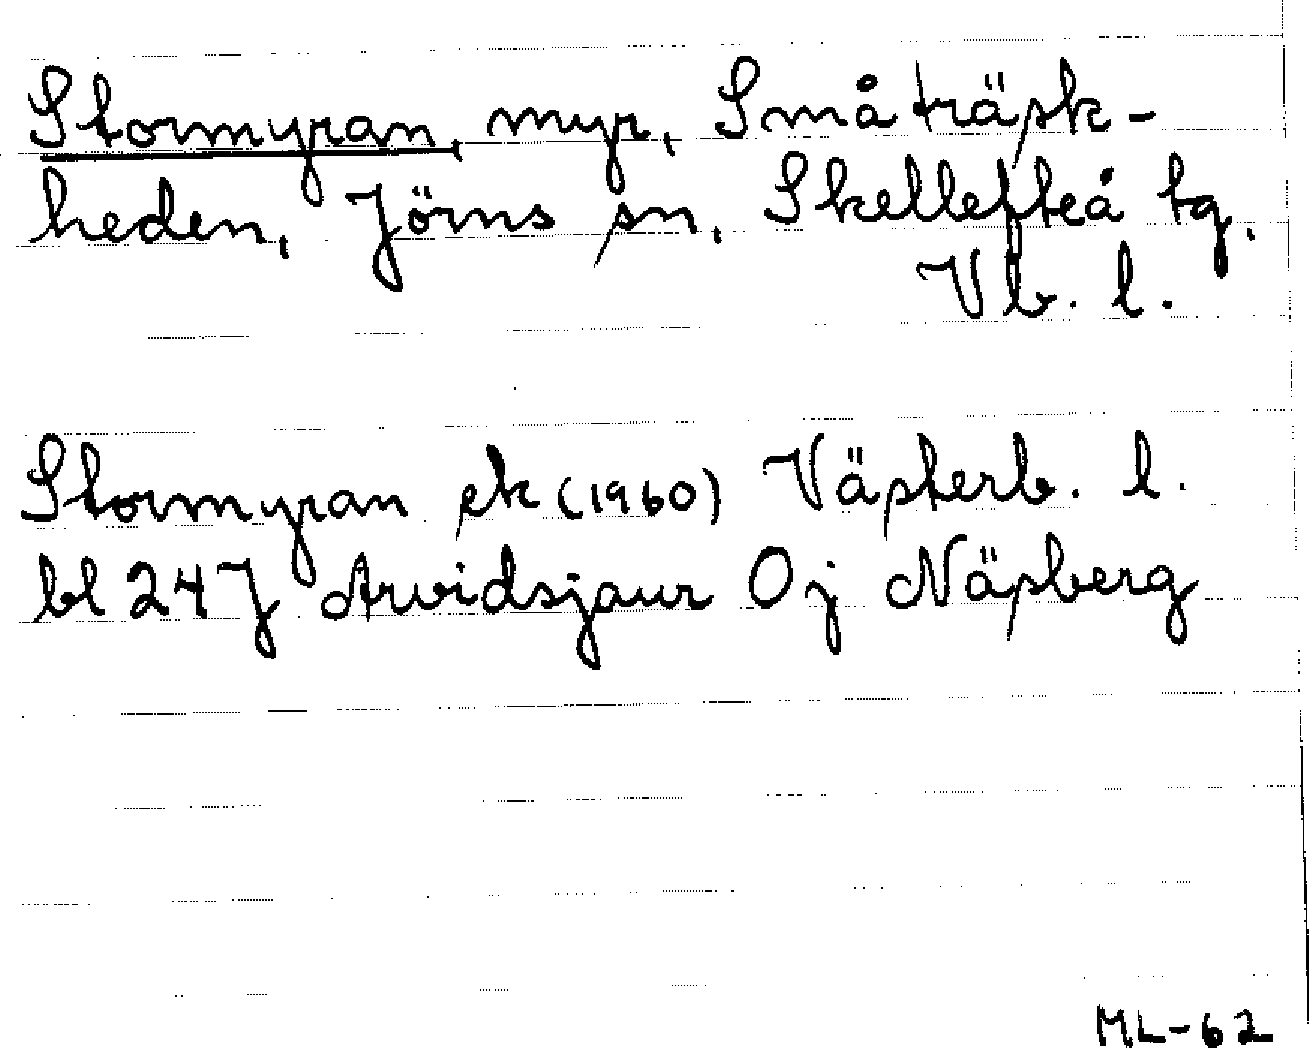 Stormyran, myr, Småträsk-
heden, Jörns sn, Skellefteå tg,
Vb. l.
Stormyran ek (1960) Västerb. l.
bl 24J Arvidsjaur Oj Näsberg
ML-62